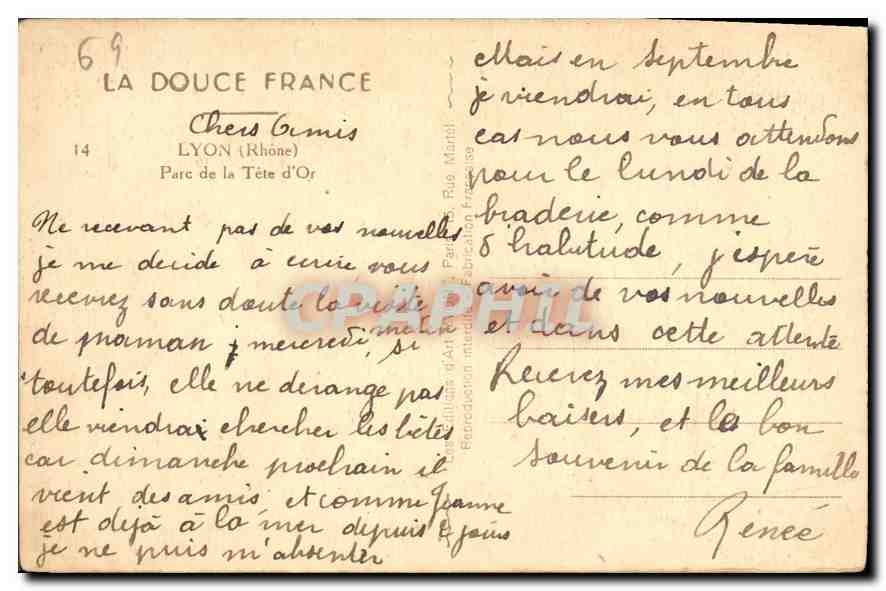 69
LA DOUCE FRANCE
Chers Amis
14 LYON (Rhône)
Parc de la Tête d'Or
Ne recevant pas de vos nouvelles
je me decide à ecrire, vous
recevrez sans doute la visite
de maman mercredi, matin si
toutefois, elle ne derange pas
elle viendrai chercher les bêtes
car dimanche prochain il
vient des amis, et comme Jeanne
est dejà à la mer depuis jours
je ne puis m'absenter
Les Editions d'Art Paris, Rue Martel
Reproduction interdite Fabrication Française
Mais en septembre
je viendrai, en tous
cas nous vous attendons
pour le lundi de la
braderie, comme
d'habitude, j'espère
avoir de vos nouvelles
et dans cette attente
Recevez mes meilleurs
baisers, et le bon
souvenir de la famille
Renée
CPAPHIL